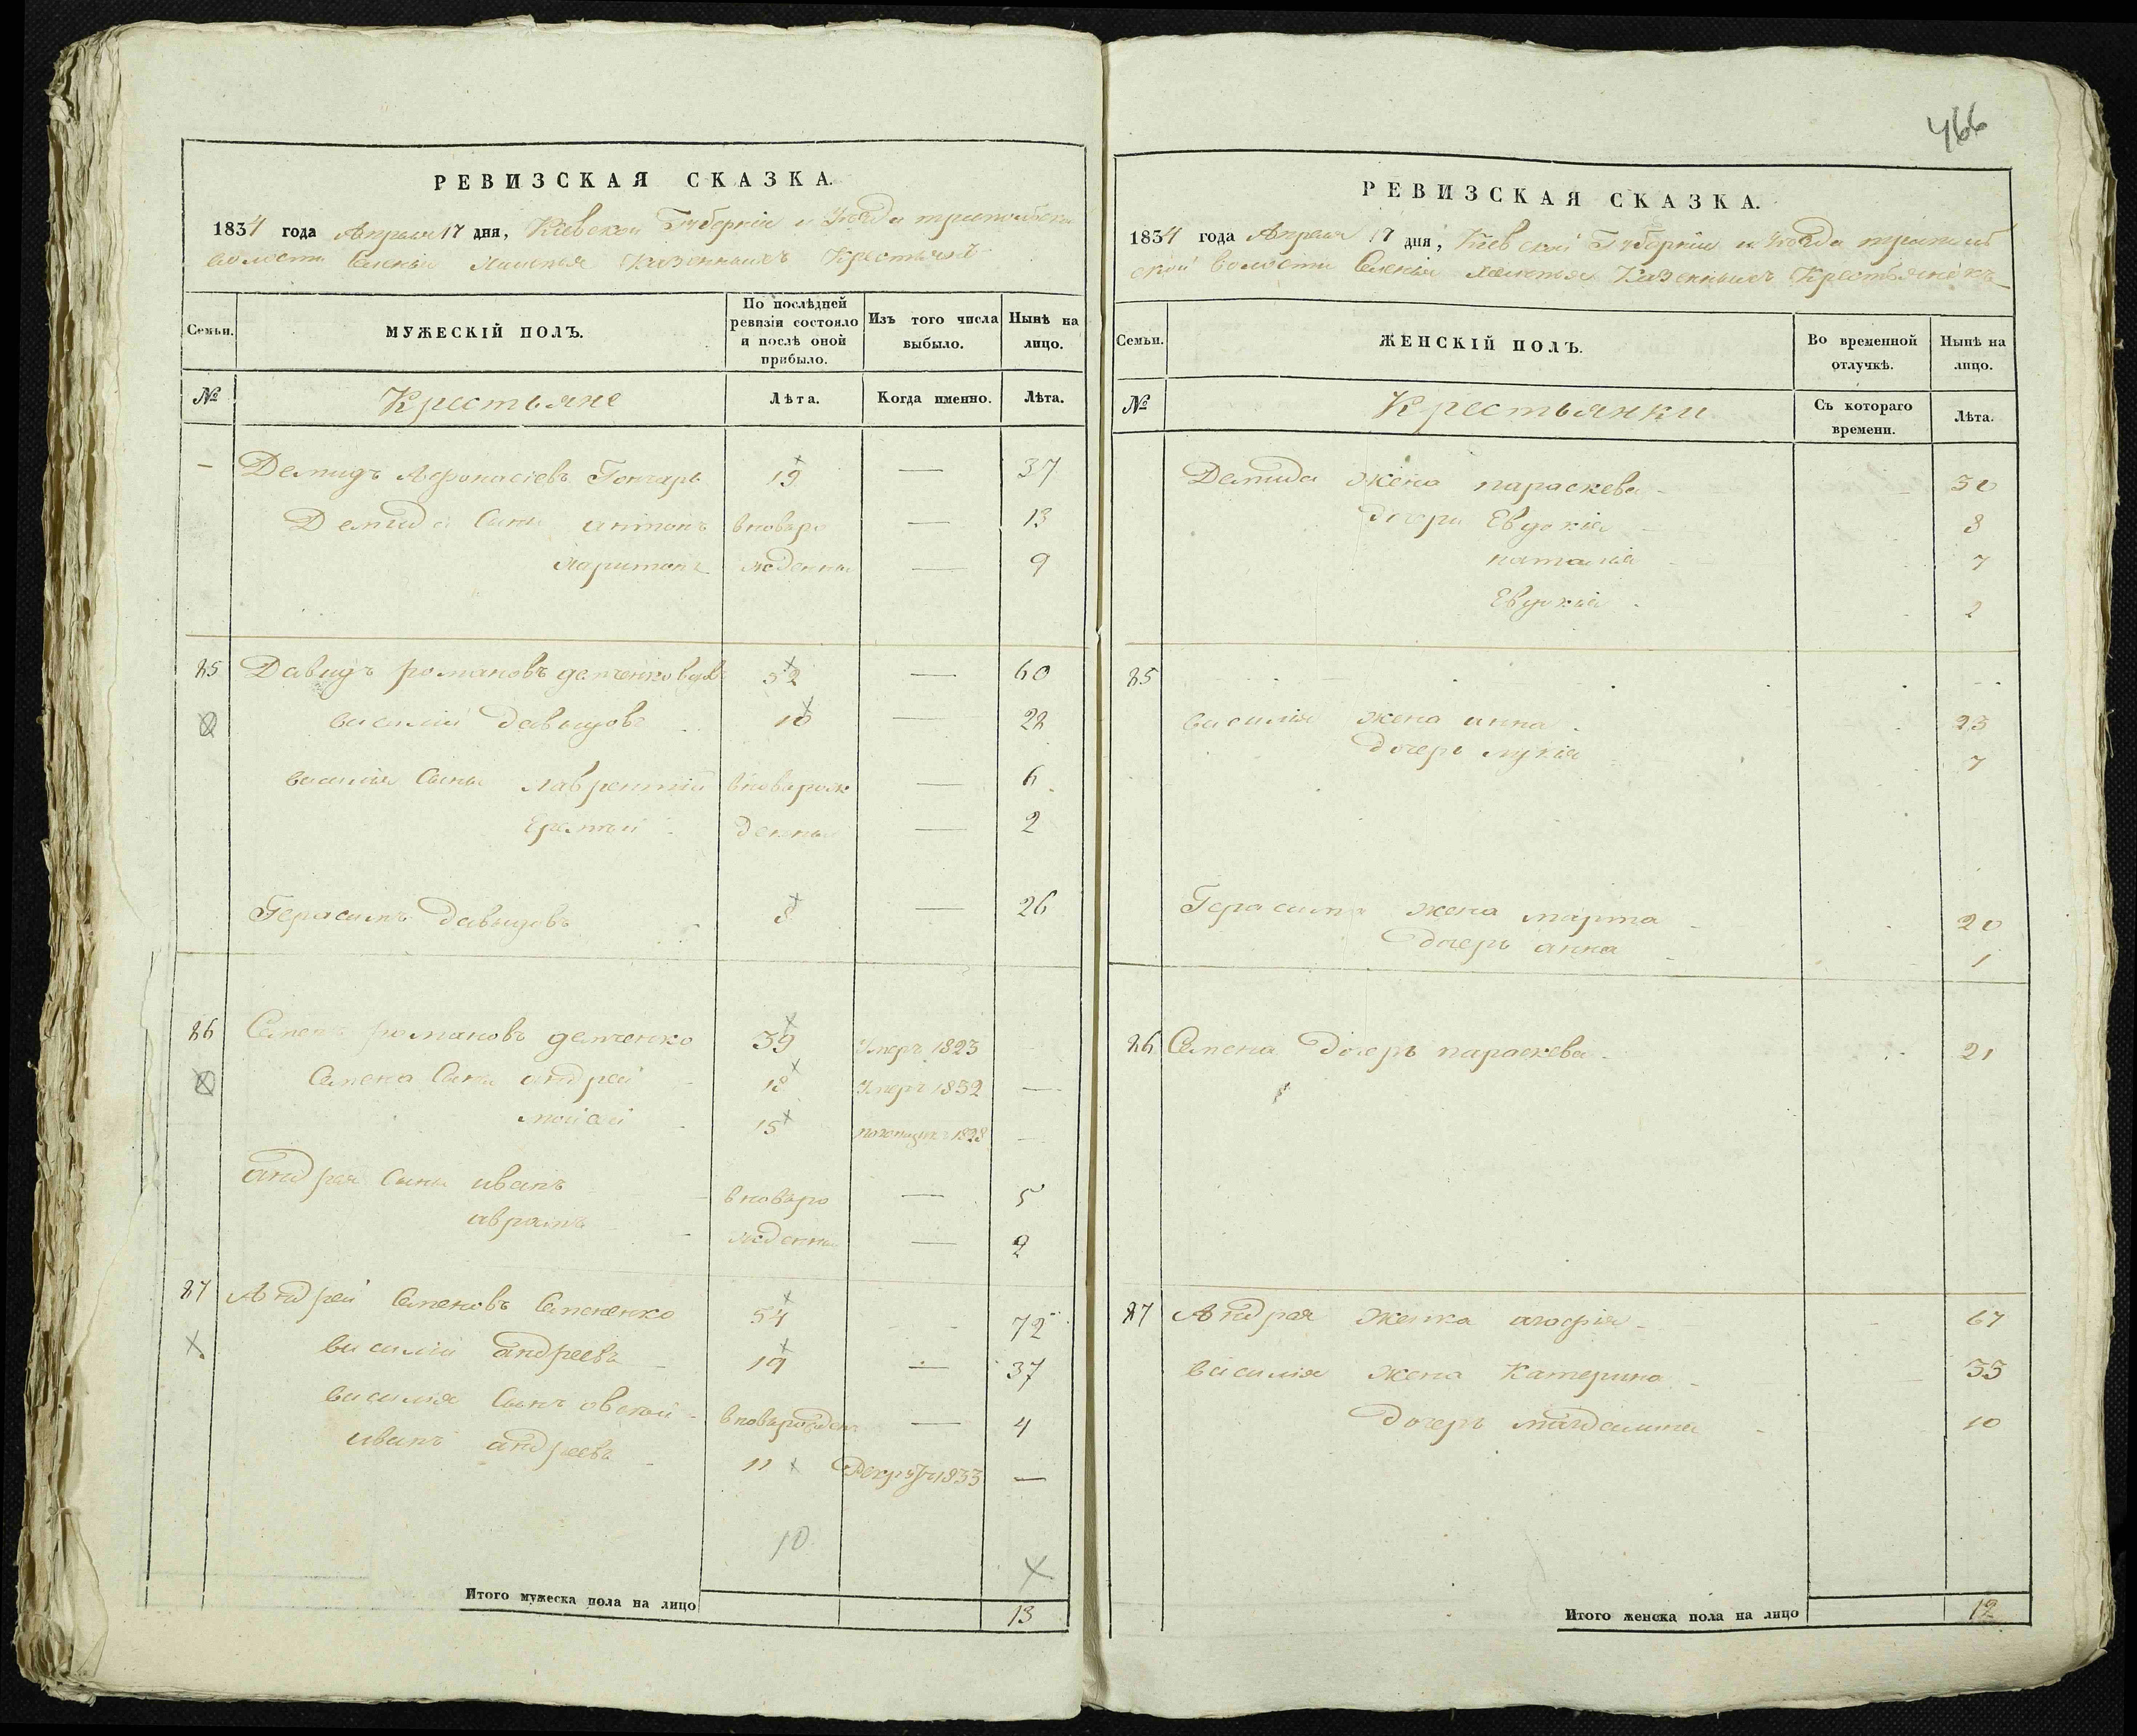 466
РЕВИЗСКАЯ СКАЗКА.
1834 года Апреля 17 дня, Киевской Губернии и Уѣзда трипольской
волости Селения Халепья Казенныхъ Крестьянъ
Семьи. МУЖЕСКІЙ ПОЛЪ. По послѣдней ревизіи состояло и послѣ оной прибыло. Изъ того числа выбыло. Нынѣ на лицо.
№ Крестьяне Лѣта. Когда именно. Лѣта.
— Демидъ Афонасіевъ Гончаръ 19 — 37
Демида Сыны антонъ вновьро — 13
харитонъ жденны — 9
85 Давидъ романовъ демченко вдовъ 52 — 60
василий Давыдовъ 10 — 28
василия Сыны лаврентий вновьрож — 6
Еремѣй денны — 2
Герасимъ Давыдовъ 8 — 26
86 Семенъ романовъ демченко 39 Умеръ 1823
Семена Сыны андрей 18 Умеръ 1832 —
мойсей 15 1828 —
андрея Сыны иванъ вновьро — 5
аврамъ жденны — 2
87 Андрей Семеновъ Семененко 54 72
василий андреевъ 19 — 37
василия Сынъ вновьрожден — 4
иванъ андреевъ 11 Рекрутъ 1833 —
10
Итого мужеска пола на лицо 13
РЕВИЗСКАЯ СКАЗКА.
1834 года Апреля 17 дня, Киевской Губернии и Уѣзда триполь
ской волости Селения Халепья Казенныхъ Крестьянокъ
Семьи. ЖЕНСКІЙ ПОЛЪ. Во временной отлучкѣ. Нынѣ на лицо.
№ Крестьянки Съ котораго времени. Лѣта.
Демида жена параскева 30
дочери Евдокия 8
наталия 7
Евдокия 2
85
василия жена анна 23
дочерь лукия 7
Герасима жена марта 20
дочерь анна 1
86 Семена дочерь параскева 21
87 Андрея женка агафия 67
василия жена Катерина 33
дочерь магдалина 10
Итого женска пола на лицо 12